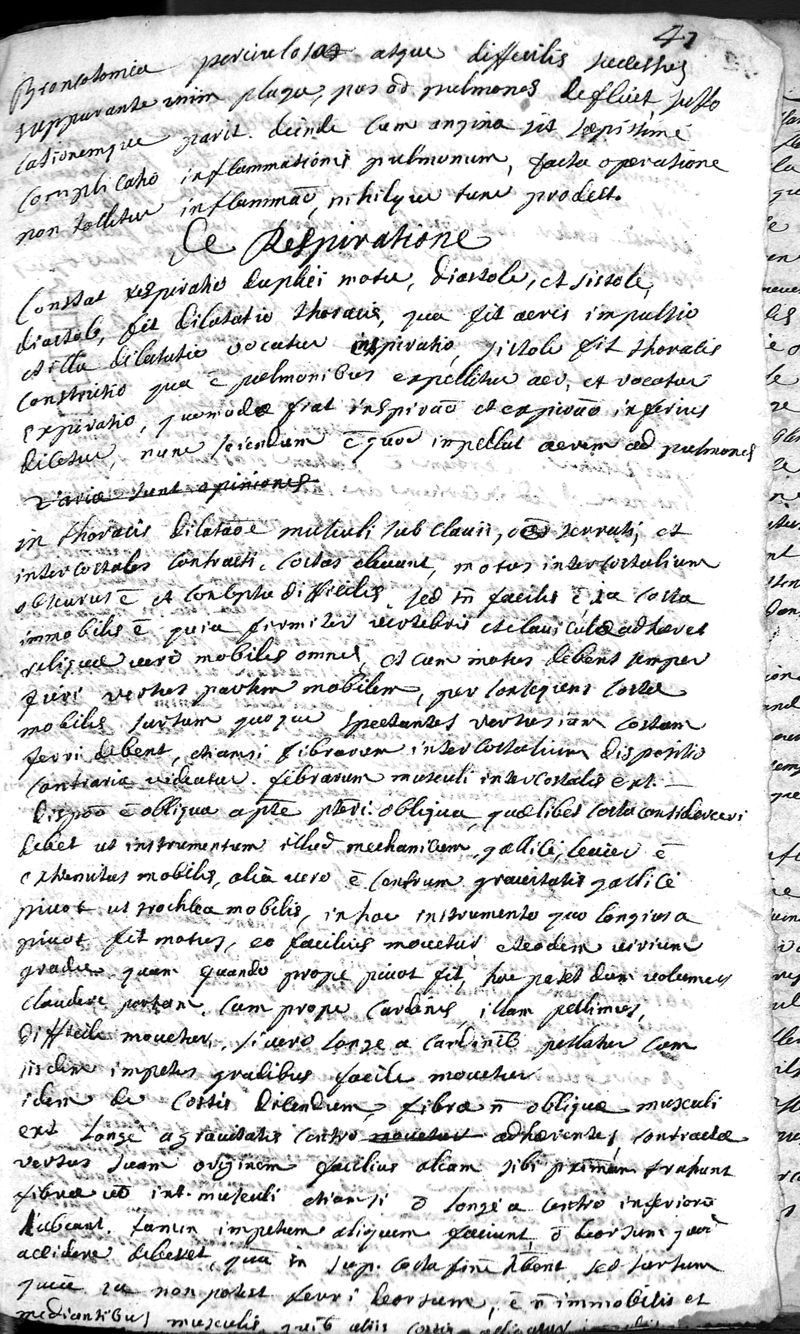 47
Broncotomia periculosa atque difficilis successus
suppurante enim plaga, pus ad pulmones defluit, suffo
cationemque parit. deinde cum angina sit sæpissime
complicatio inflammationis pulmonum, facta operatione
non tollitur inflammaō, nihilque tunc prodest.
De Respiratione
Constat respiratio duplici motu, diastole, et sistole,
diastole, fit dilatatio thoracis, qua fit aeris impulsio
et illa dilatatio vocatur inspiratio, sistole fit thoracis
constrictio qua ē pulmonibus expellitur aer, et vocatur
expiratio, quomodo fiat inspiraō et expiraō inferius
dicetur, nunc sciendum ē quod impellat aerem ad pulmones
variæ sunt opiniones
in thoracis dilataōe musculi subclavii, serrati, et
intercostales contracti, costas elevant, motus intercostalium
obscurus ē et conceptu difficilis sed tn̄ facilis ē, 1a costa
immobilis ē quia firmiter vertebris et claviculæ adhæret
reliquæ vero mobiles omnes, et cum motus debent semper
fieri versus partem mobilem, per consequens costæ
mobiles sursum quoque spectantes versus 1am costam
ferri debent, etiamsi fibrarum intercostalium dispositio
contraria videatur. fibrarum musculi intercostalis ext.
dispoō ē obliqua a pte pteri. obliqua, quælibet costa considerari
debet ut instrumentum illud mechanicum, gallice, levier ē
extremitas mobilis, alia vero ē centrum gravitatis gallice
pivot ut trochlea mobilis, in hoc instrumento quo longius a
pivot fit motus, eo facilius movetur eteodem virium
gradu, quam quando prope pivot fit, hoc patet dum volumus
claudere portam, cum prope cardines, illam pellimus,
difficile movetur, si vero longe a cardinib pellatur cum
iisdem impetus gradibus facile movetur
idem de costis dicendum, fibræ n̄ obliquæ musculi
ext longe a gravitatis centro movetur adhærentes, contractæ
versus suam originem facilius aliam sibi primam trahunt
fibræ vō int. musculi etiamsi ō longe a centro inferiorē
habeant. tamen impetum aliquem faciunt, ō deorsum
accidere deberet, quia in sup. costa finē hbent sed sursum
quia 1a non potest ferri deorsum, ē n̄ immobilis et
mediantibus musculis, quib aliis costis